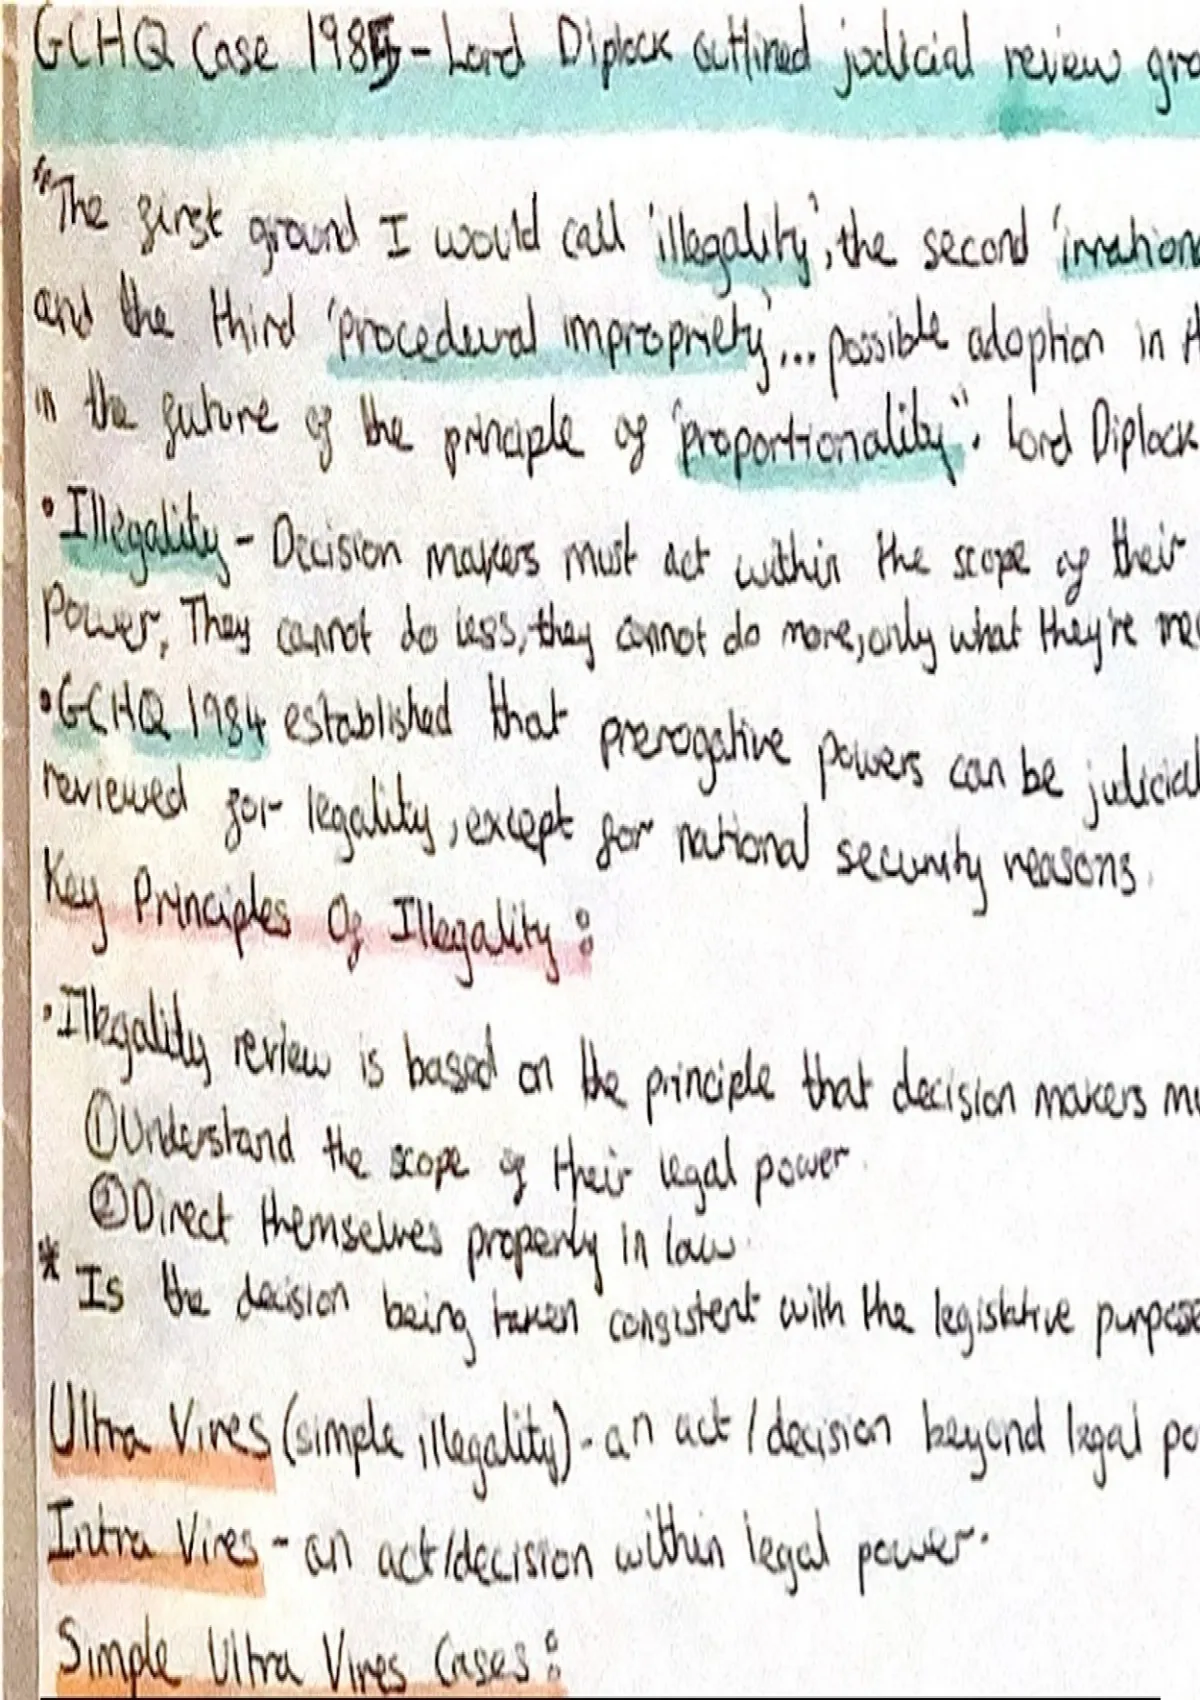 GCHQ Case 1985 - Lord Diplock outlined judicial review gro
"The first ground I would call 'illegality', the second 'irration
and the third 'procedural impropriety'... possible adoption in th
in the future of the principle of 'proportionality'". Lord Diplock
• Illegality - Decision makers must act within the scope of their
Power, They cannot do less, they cannot do more, only what they're me
• GCHQ 1984 established that prerogative powers can be judicial
reviewed for legality, except for national security reasons.
Key Principles Of Illegality:
• Illegality review is based on the principle that decision makers mu
① Understand the scope of their legal power
② Direct themselves properly in law.
* Is the decision being taken consistent with the legislative purpose
Ultra Vires (simple illegality) - an act / decision beyond legal po
Intra Vires - an act/decision within legal power.
Simple Ultra Vires Cases: